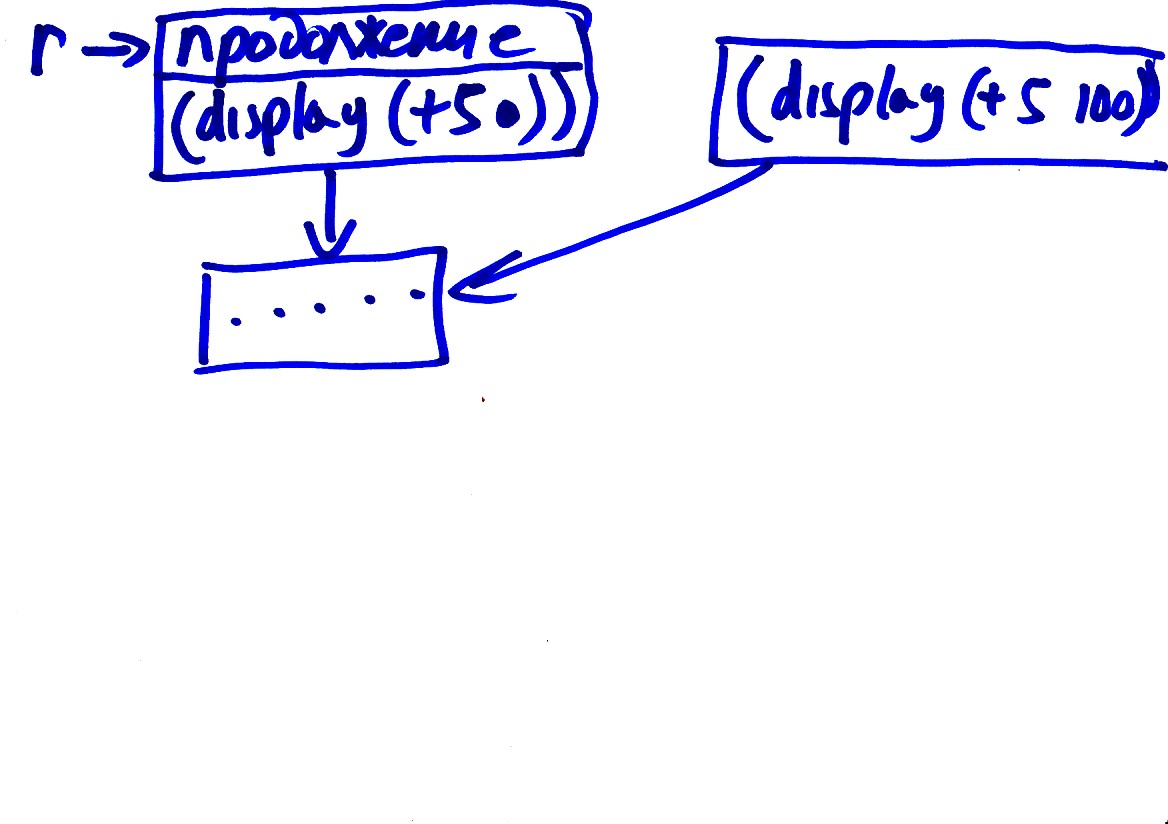 r → продолжение
(display (+5 •))
(display (+ 5 100)
. . . . .